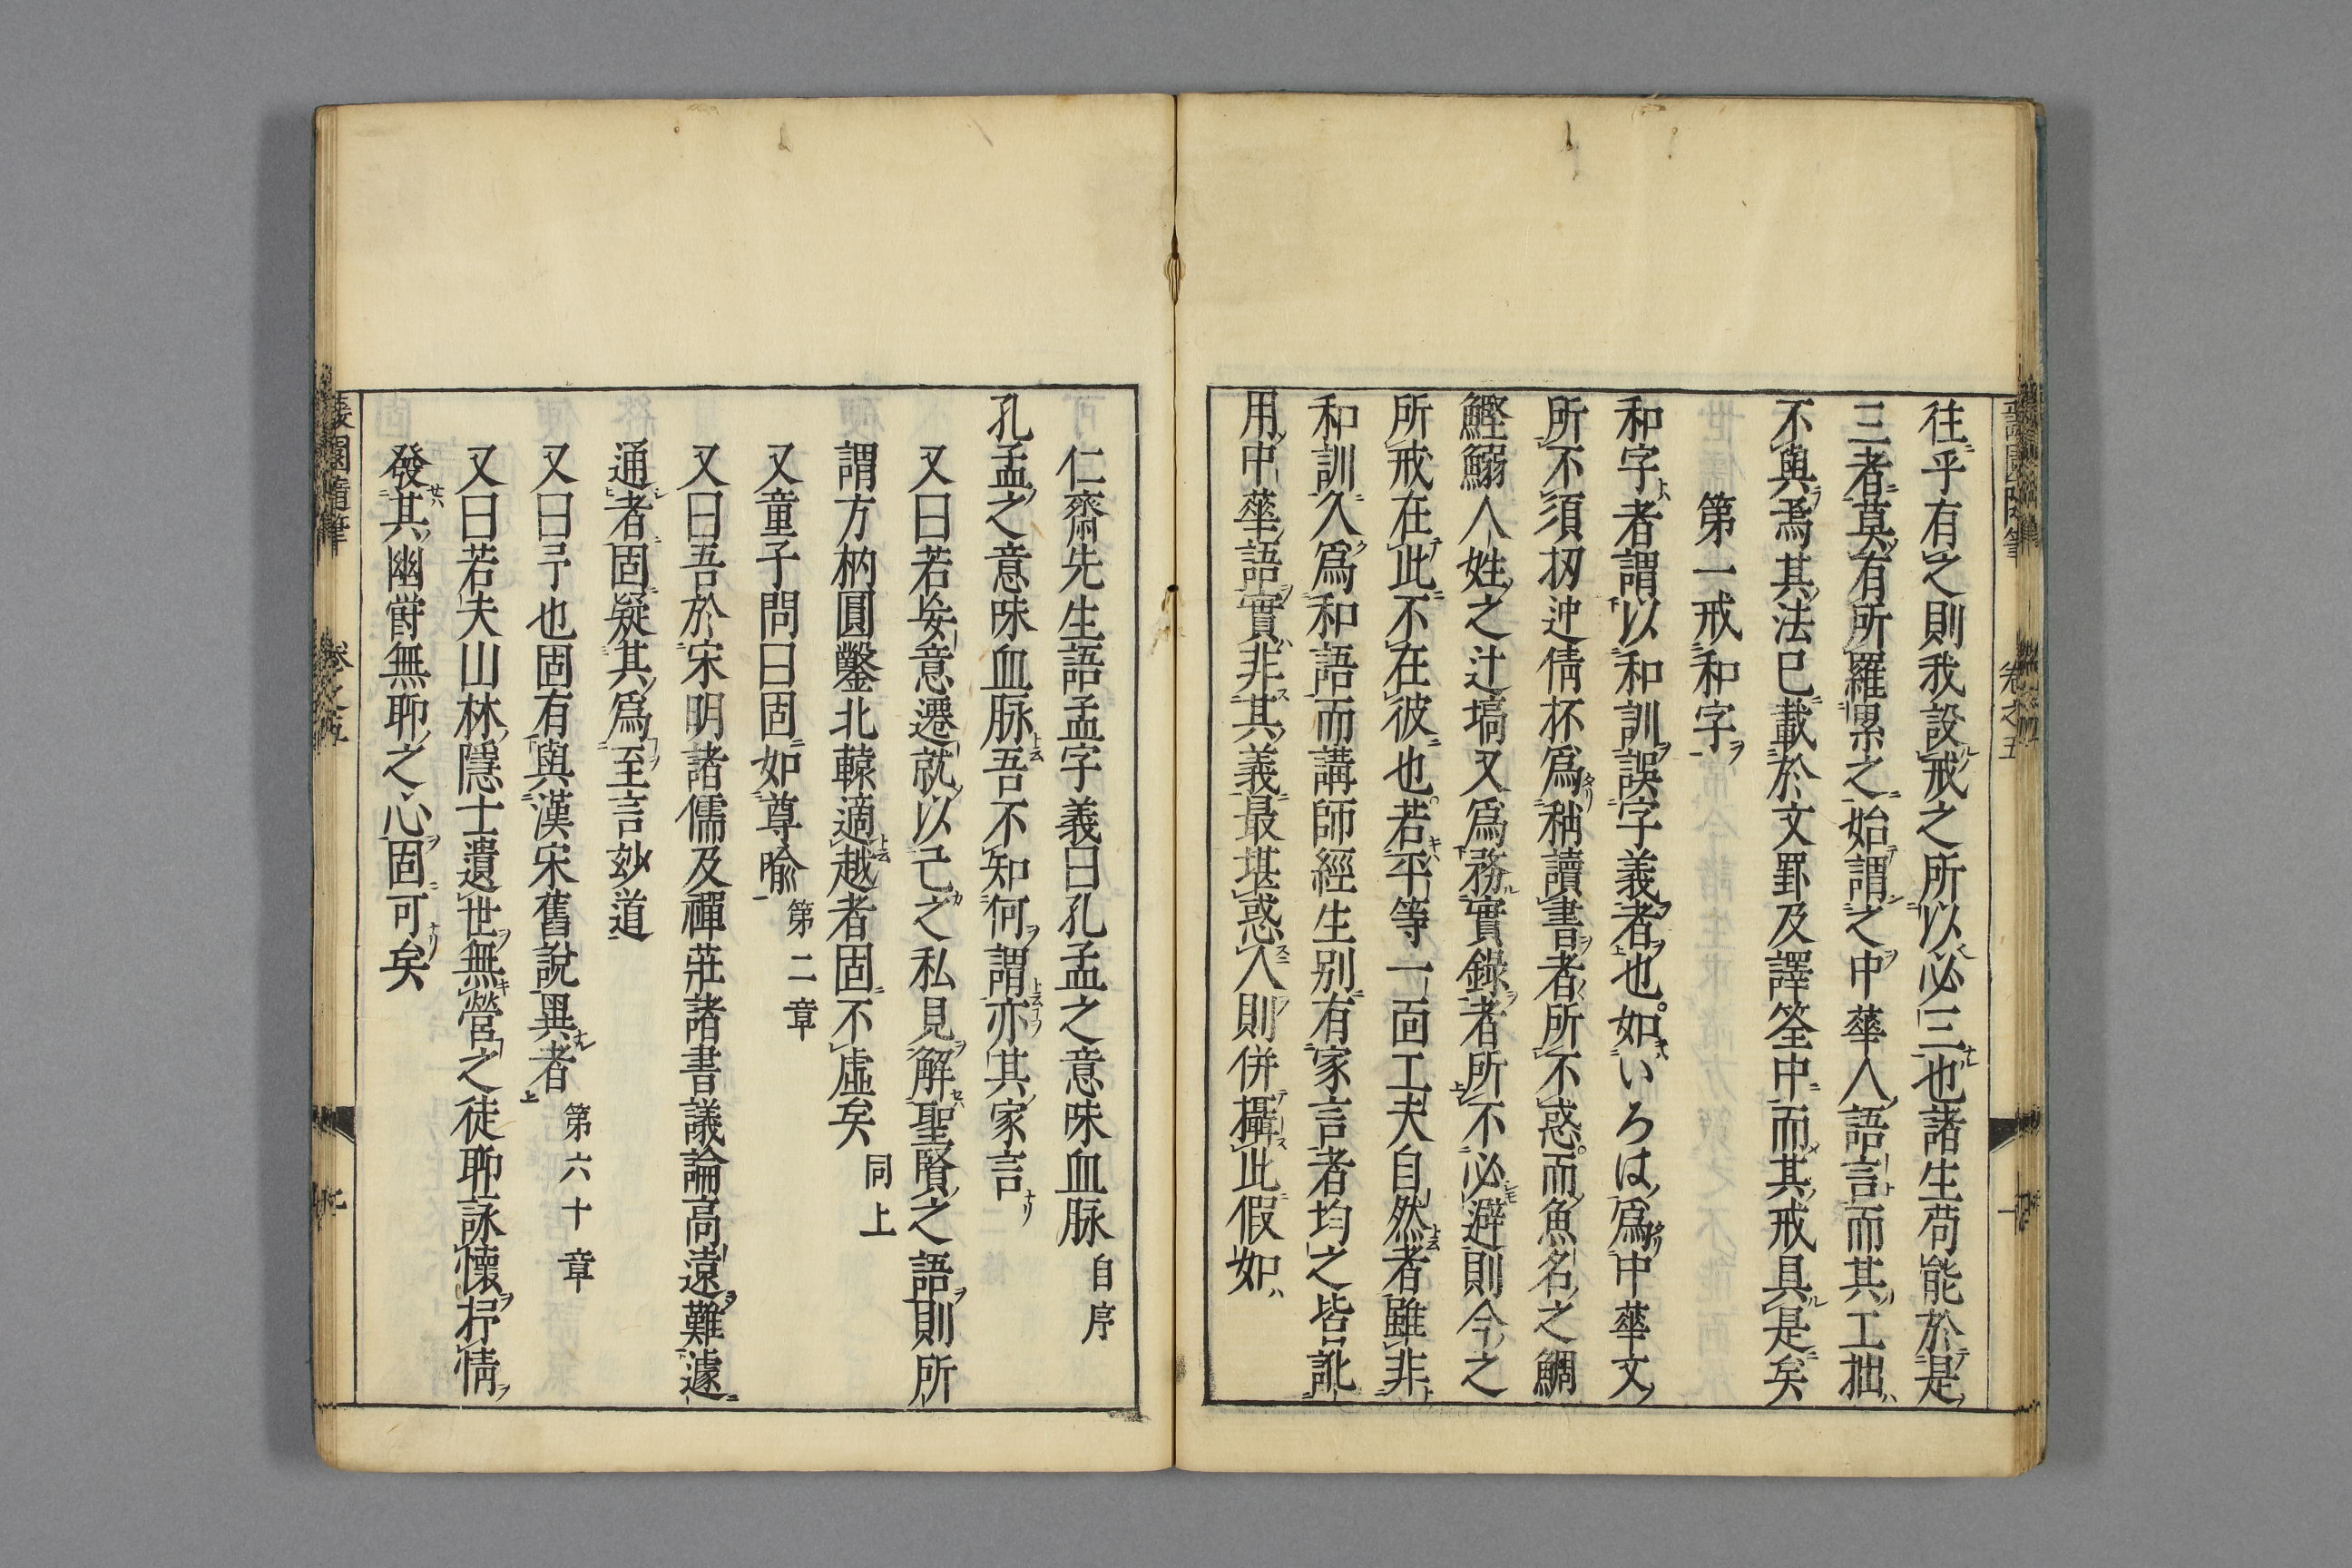 往乎有之則我設戒之所以必三也諸生苟能於是
三者莫有所羅累之始謂之中華人語言而其工拙
不與焉其法已載於文罫及譯筌中而其戒具是矣
第一戒和字
和字者謂以和訓誤字義者也如いろは爲中華文
所不須扨迚倩杯爲稍讀書者所不惑而魚名之鯛
鰹鰯人姓之辻塙又爲務實錄者所不必避則今之
所戒在此不在彼也若平等一面工夫自然者雖非
和訓久爲和語而講師經生別有家言者均之皆訛
用中華語實非其義最堪惑人則併攝此假如
仁齋先生語孟字義曰孔孟之意味血脉自序
孔孟之意味血脉吾不知何謂亦其家言
又曰若妄意遷就以己之私見解聖賢之語則所
謂方枘圓鑿北轅適越者固不虛矣同上
又童子問曰固如尊喻第二章
又曰吾於宋明諸儒及禪莊諸書議論高遠難遽
通者固疑其爲至言玅道
又曰予也固有與漢宋舊說異者第六十章
又曰若夫山林隱士遺世無營之徒聊詠懷抒情
發其幽鬱無聊之心固可矣
卷之五